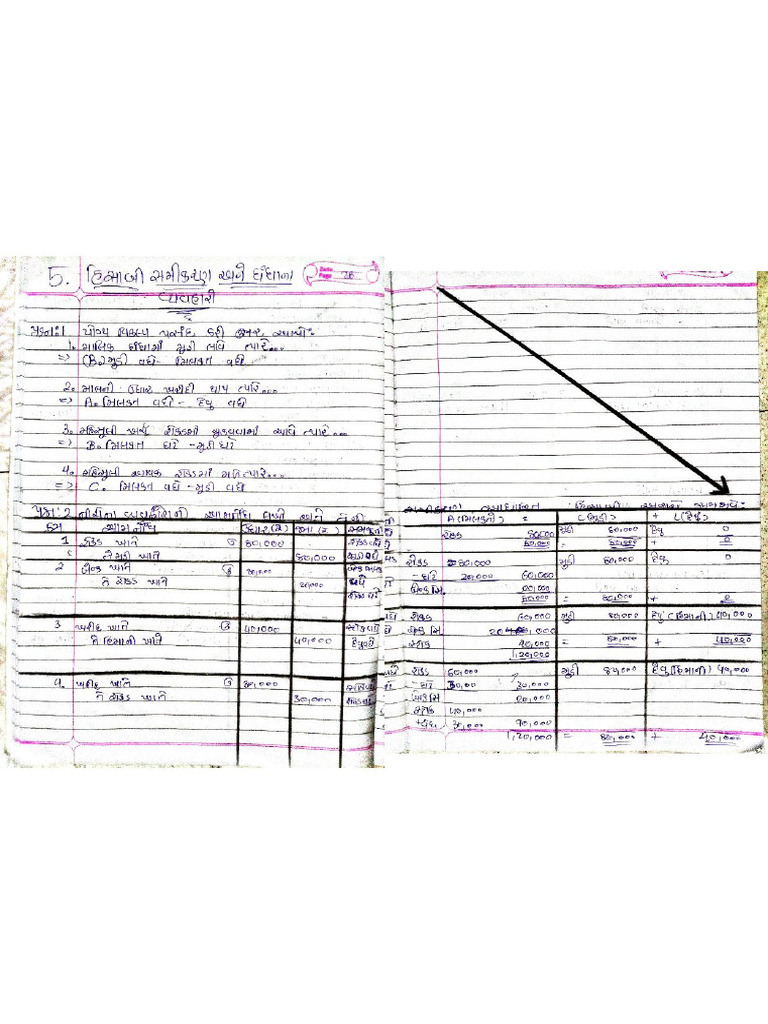 5. હિસાબી સમીકરણ અને ધંધાના
Date
Page 26
વ્યવહારો
પ્રશ્ન:1 યોગ્ય વિકલ્પ પસંદ કરી ઉત્તર આપો:
1. માલિક ધંધામાં મૂડી લાવે ત્યારે...
=> (B) મૂડી વધે - મિલકત વધે
2. માલની ઉધાર ખરીદી થાય ત્યારે...
=> A. મિલકત વધે - દેવુ વધે
3. મહેસુલી ખર્ચ રોકડમાં ચુકવવામાં આવે ત્યારે...
=> B. મિલકત ઘટે - મૂડી ઘટે
4. મહેસુલી આવક રોકડમાં મળે ત્યારે...
=> C. મિલકત વધે - મૂડી વધે
પ્રશ્ન:2 નીચેના વ્યવહારોની આમનોંધ લખો અને તેની
ક્રમ આમનોંધ ઉધાર(રૂ.) જમા(રૂ.)
1 રોકડ ખાતે ઉ 80,000
તે મૂડી ખાતે 80,000
2 બેન્ક ખાતે ઉ 20,000
તે રોકડ ખાતે 20,000
3 ખરીદ ખાતે ઉ 40,000
તે હિમાની ખાતે 40,000
4. ખરીદ ખાતે ઉ 30,000
તે રોકડ ખાતે 30,000
A(મિલકતો) = C(મૂડી) + L(દેવુ)
રોકડ 80,000 મૂડી 80,000 દેવુ 0
80,000 = 80,000 + 0
રોકડ 80,000 મૂડી 80,000 દેવુ 0
- ઘટે 20,000 60,000
બેન્ક સિ. 20,000
80,000 = 80,000 + 0
રોકડ 60,000 મૂડી 80,000 દેવુ (હિમાની) 40,000
બેન્ક સિ 20,000
સ્ટોક 40,000 = 80,000 + 40,000
1,20,000
રોકડ 60,000 મૂડી 80,000 દેવુ (હિમાની) 40,000
- ઘટે 30,000 30,000
બેન્ક સિ 20,000
સ્ટોક 40,000
30,000 70,000
1,20,000 = 80,000 + 40,000